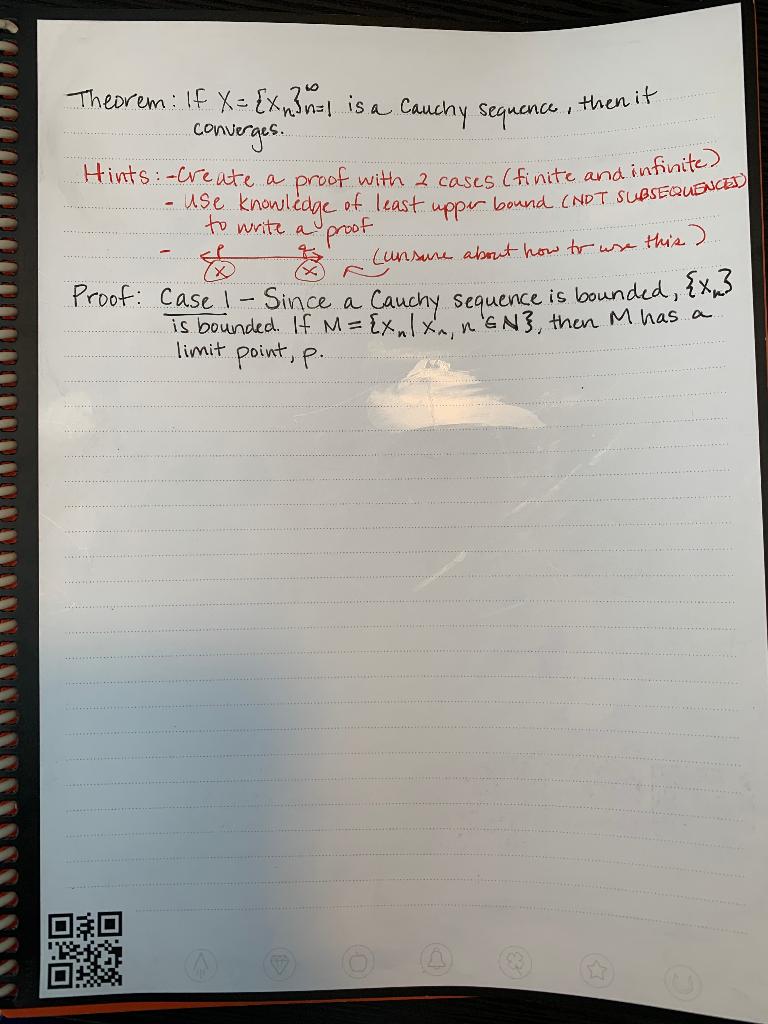 Theorem: If X = {xₙ}ₙ₌₁^∞ is a Cauchy sequence, then it
converges.
Hints: - Create a proof with 2 cases (finite and infinite)
- Use knowledge of least upper bound (NOT SUBSEQUENCES)
to write a proof
- p q (unsure about how to use this)
(x) (x)
Proof: Case 1 - Since a Cauchy sequence is bounded, {xₙ}
is bounded. If M = {xₙ | xₙ, n ∈ N}, then M has a
limit point, p.